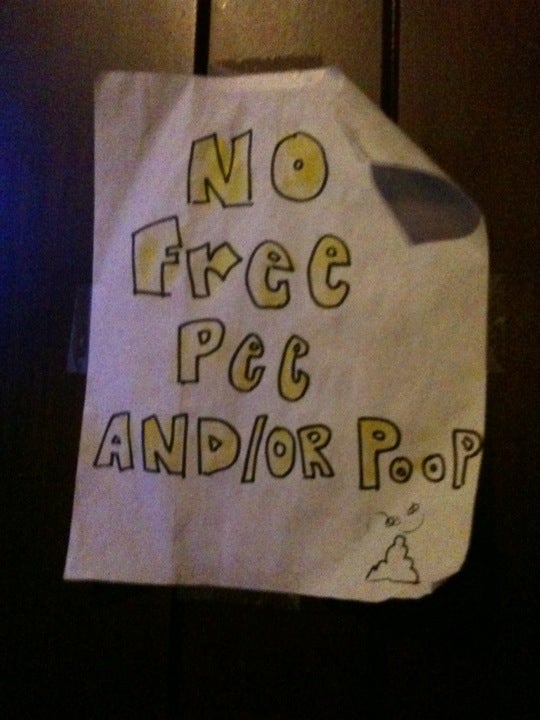 NO
Free
Pee
AND/OR PooP